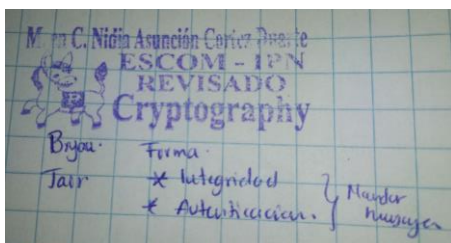 M. en C. Nidia Asunción Cortez Duarte
ESCOM - IPN
REVISADO
Cryptography
Forma.
Tair
* Integridad
* Autentificación.
Mandar